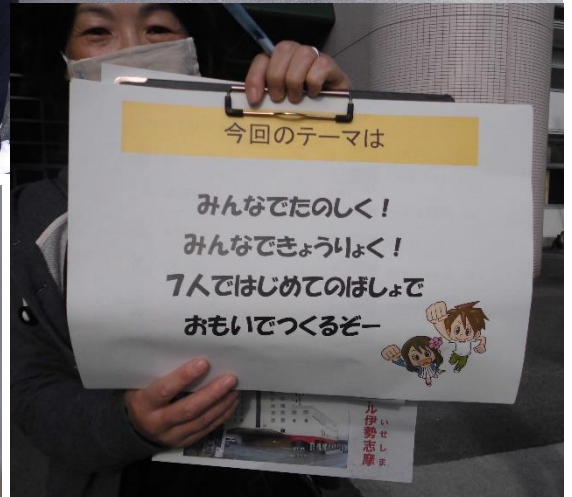 今回のテーマは
みんなでたのしく!
みんなできょうりょく!
7人ではじめてのばしょで
おもいでつくるぞー
ル伊勢志摩
いせしま